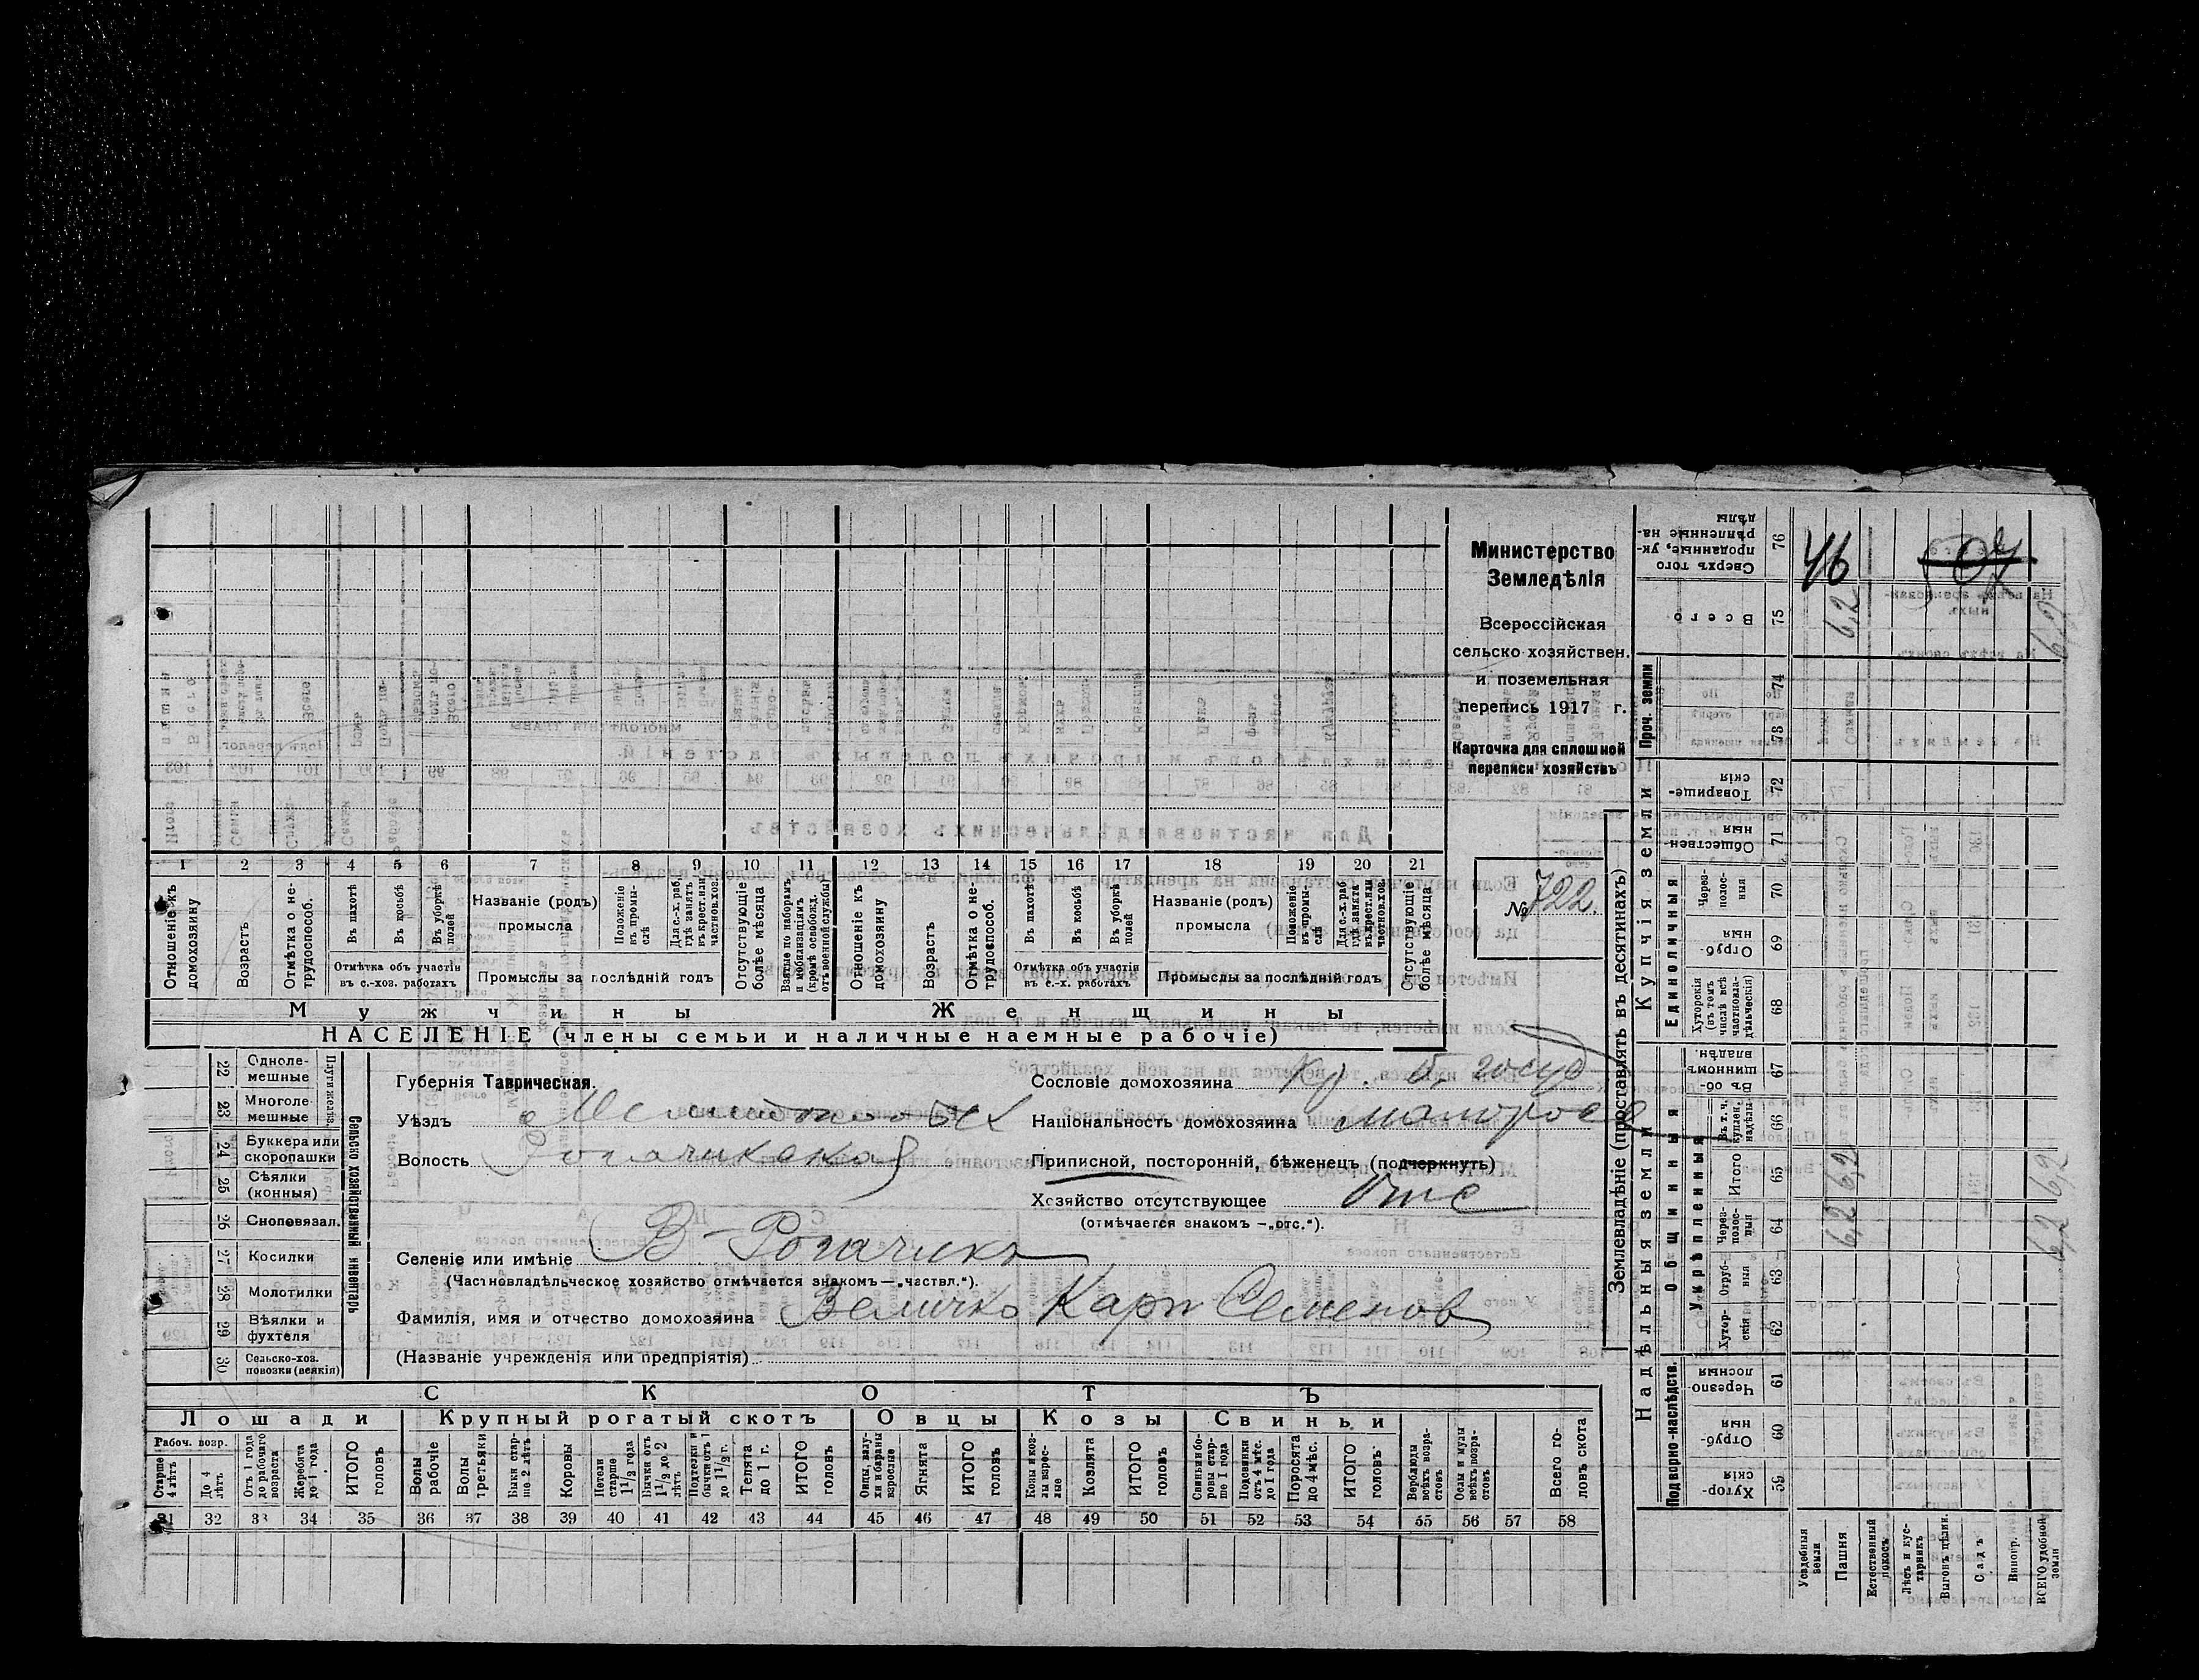 Министерство
Земледѣлія
Всероссійская
сельско-хозяйствен.
и поземельная
перепись 1917 г.
Карточка для сплошной
переписи хозяйствъ
№ 722.
1 2 3 4 5 6 7 8 9 10 11 12 13 14 15 16 17 18 19 20 21
Отношеніе къ домохозяину
Возрастъ
Отмѣтка о нетрудоспособ.
Въ пахотѣ
Въ косьбѣ
Въ уборкѣ полей
Отмѣтка объ участіи въ с.-хоз. работахъ
Названіе (родъ) промысла
Положеніе въ промыслѣ
Для с.-х. раб. гдѣ занятъ въ крест. или частнов. хоз.
Промыслы за послѣдній годъ
Отсутствующіе болѣе мѣсяца
Взятые по наборамъ и мобилизаціямъ (кромѣ освобожд. отъ военной службы)
Отношеніе къ домохозяину
Возрастъ
Отмѣтка о нетрудоспособ.
Въ пахотѣ
Въ косьбѣ
Въ уборкѣ полей
Отмѣтка объ участіи въ с.-х. работахъ
Названіе (родъ) промысла
Положеніе въ промыслѣ
Для с.-х. раб. гдѣ занята въ крест. или частнов. хоз.
Промыслы за послѣдній годъ
Отсутствующіе болѣе мѣсяца
Мужчины Женщины
НАСЕЛЕНІЕ (члены семьи и наличные наемные рабочіе)
22 Однолемешные
23 Многолемешные
Плуги желѣз.
24 Буккера или скоропашки
25 Сѣялки (конныя)
26 Сноповязал.
27 Косилки
28 Молотилки
29 Вѣялки и фухтеля
30 Сельско-хоз. повозки (всякія)
Сельско хозяйственный инвентарь
Губернія Таврическая.
Уѣздъ Мелитопол
Волость Рогачикская
Сословіе домохозяина Кр. б. госуд
Національность домохозяина малорос
Приписной, посторонній, бѣженецъ (подчеркнуть)
Хозяйство отсутствующее Отс
(отмѣчается знакомъ —„отс.“).
Селеніе или имѣніе В-Рогачикъ
(Частновладѣльческое хозяйство отмѣчается знакомъ—„частвл.“).
Фамилія, имя и отчество домохозяина Величко Карп Семенов
(Названіе учрежденія или предпріятія)
СКОТЪ
Лошади Крупный рогатый скотъ Овцы Козы Свиньи
Рабоч. возр.
Старше 4 лѣтъ
До 4 лѣтъ
Отъ 1 года до рабочаго возраста
Жеребята до 1 года
ИТОГО головъ
Волы рабочіе
Волы третьяки
Быки старше 2 лѣтъ
Коровы
Нетели старше 1 1/2 года
Бычки отъ 1 1/2 до 2 лѣтъ
Подтелки и бычки отъ 1 до 1 1/2 г.
Телята до 1 г.
ИТОГО головъ
Овцы, валухи и бараны взрослые
Ягнята
ИТОГО головъ
Козы и козлы взрослые
Козлята
ИТОГО головъ
Свиньи и боровы старше 1 года
Подсвинки отъ 4 мѣс. до 1 года
Поросята до 4 мѣс.
ИТОГО головъ
Верблюды всѣхъ возрастовъ
Ослы и мулы всѣхъ возрастовъ
Всего головъ скота
31 32 33 34 35 36 37 38 39 40 41 42 43 44 45 46 47 48 49 50 51 52 53 54 55 56 57 58
Землевладѣніе (проставлять въ десятинахъ)
Сверхъ того проданные, укрѣпленные надѣлы 76 46
Всего 75 6,2 6,2
Проч. земли 74
73
Купчія земли
Товарищескія 72
Общественныя 71
Единоличныя
Черезполосныя 70
Отрубныя 69
Хуторскія (въ томъ числѣ всѣ частновладѣльческія) 68
Надѣльныя земли
Общинныя
Въ общинномъ владѣн. 67
Укрѣпленныя
Въ т. ч. куплен. надѣлы 66
Итого 65 6,2 6,2
Черезполосныя 64 6,2 6,2
Отрубныя 63
Хуторскія 62
Подворно-наслѣдств.
Черезполосныя 61
Отрубныя 60
Хуторскія 59
Усадебныя земли
Пашня
Естественный покосъ
Лѣсъ и кустарникъ
Выгонъ цѣлин.
Садъ
Виногр.
ВСЕГО удобной земли